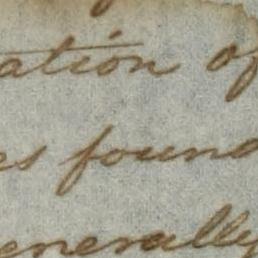 ation of
es found
enerally